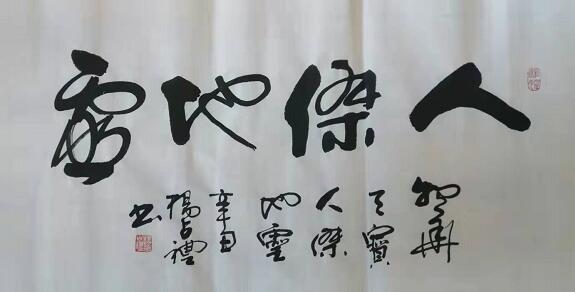 人傑地靈
物華
天寶
人傑
地靈
辛丑
楊占禮
書